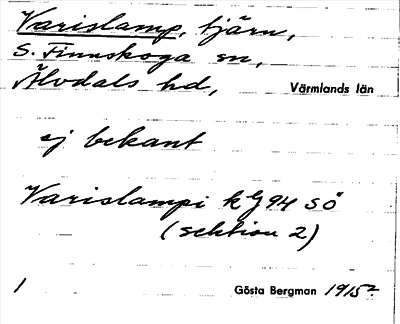 Varislamp, tjärn,
S. Finnskoga sn,
Älvdals hd, Värmlands län
ej bekant
Varislampi kg 94 SÖ
(sektion 2)
1 Gösta Bergman 1915?